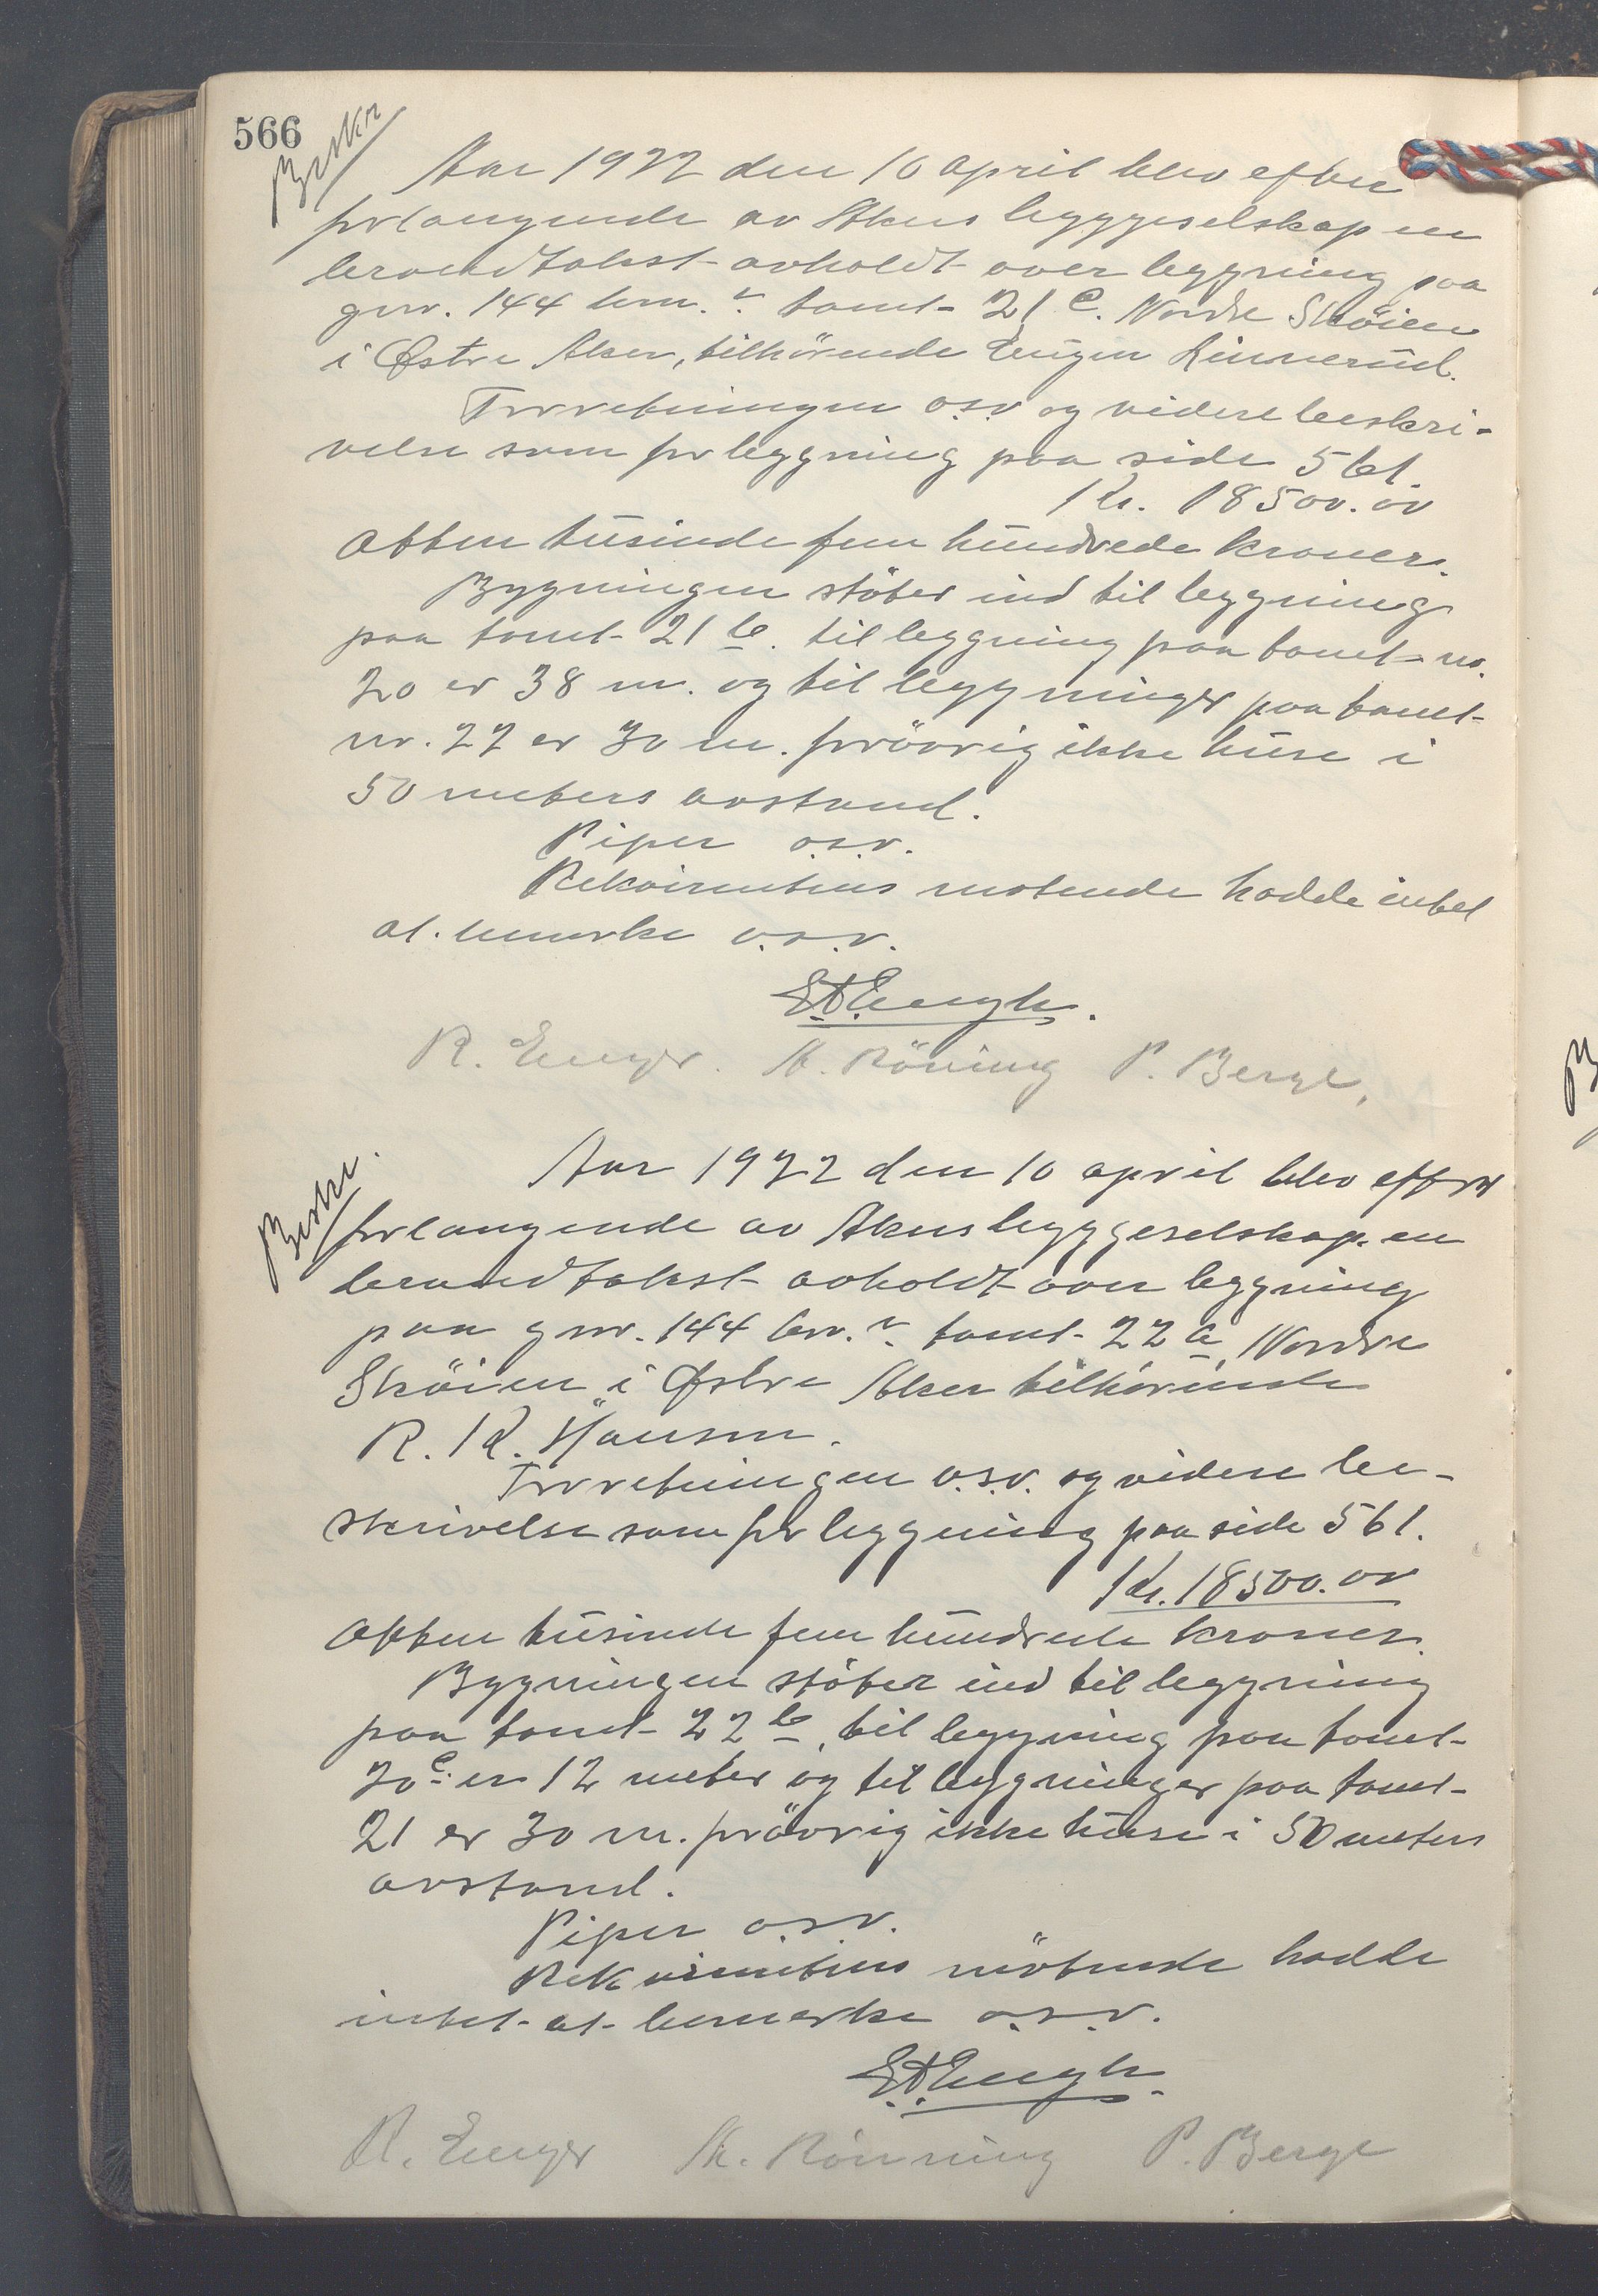 566
Beskr
Aar 1922 den 10 april blev efter
forlangende av Akers byggeselskap en
brandtakst avholdt over bygning paa
gnr. 144 brn. ? tomt 21 c. Nordre Skøien
i Østre Aker, tilhørende Eugen Linnerud.
Forretningen o.s.v. og videre beskri-
velse som for bygning paa side 561.
Kr. 18500.00
Atten tusinde fem hundrede kroner.
Bygningen støter ind til bygning
paa tomt 21 b. til bygning paa tomt nr.
20 er 38 m. og til bygninger paa tomt
nr. 22 er 30 m. forøvrig ikke huse i
50 meters avstand.
Piper o.s.v.
Rekvirentens møtende hadde intet
at bemerke o.s.v.
E.A.Engh.
R. Enger. K. Röning P. Berge,
Beskr.
Aar 1922 den 10 april blev efter
forlangende av Akers byggeselskap en
brandtakst avholdt over bygning
paa gnr. 144 bn. ? tomt 22 a, Nordre
Skøien i Østre Aker tilhørende
R. K. Hansen.
Forretningen o.s.v. og videre be-
skrivelse som for bygning paa side 561.
Kr. 18500.00
Atten tusinde fem hundrede kroner.
Bygningen støter ind til bygning
paa tomt 22 b, til bygning paa tomt
20 c. er 12 meter og til bygninger paa tomt
21 er 30 m. forøvrig ikke huse i 50 meters
avstand.
Piper o.s.v.
Rekvirentens møtende hadde
intet at bemerke o.s.v.
E.A.Engh.
R. Enger K. Rönning P. Berge